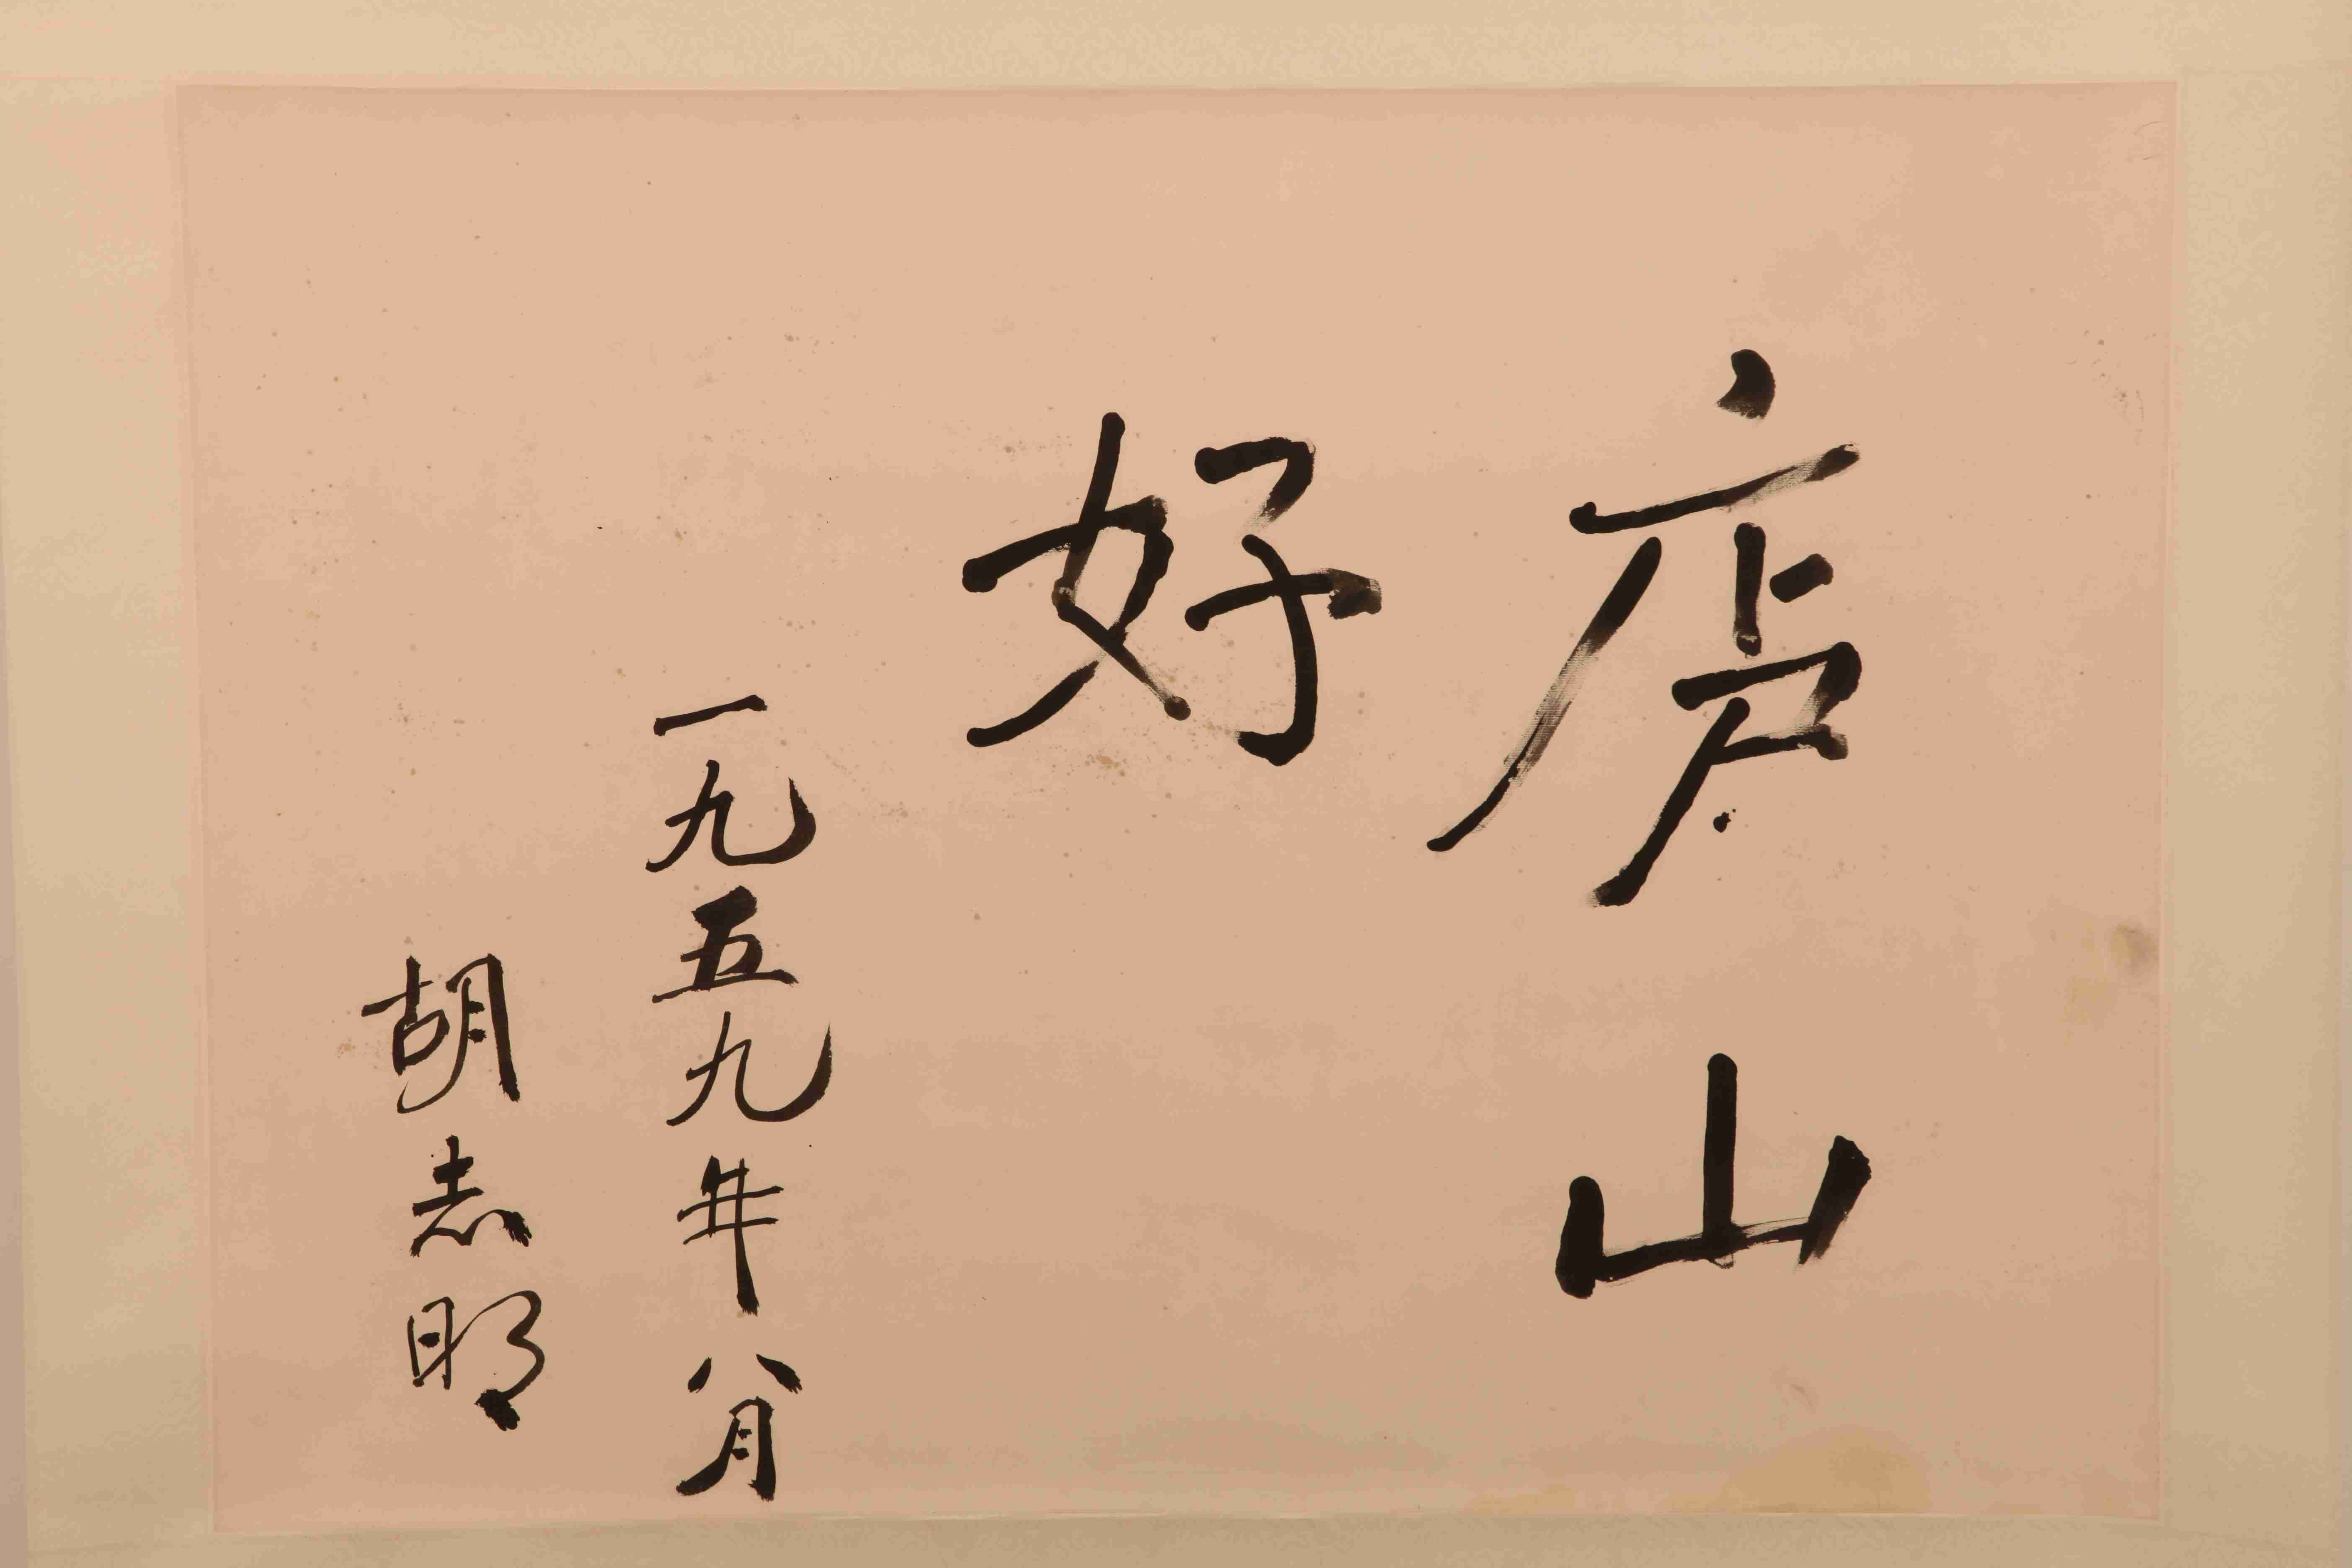 庐山
好
一九五九年八月
胡志明